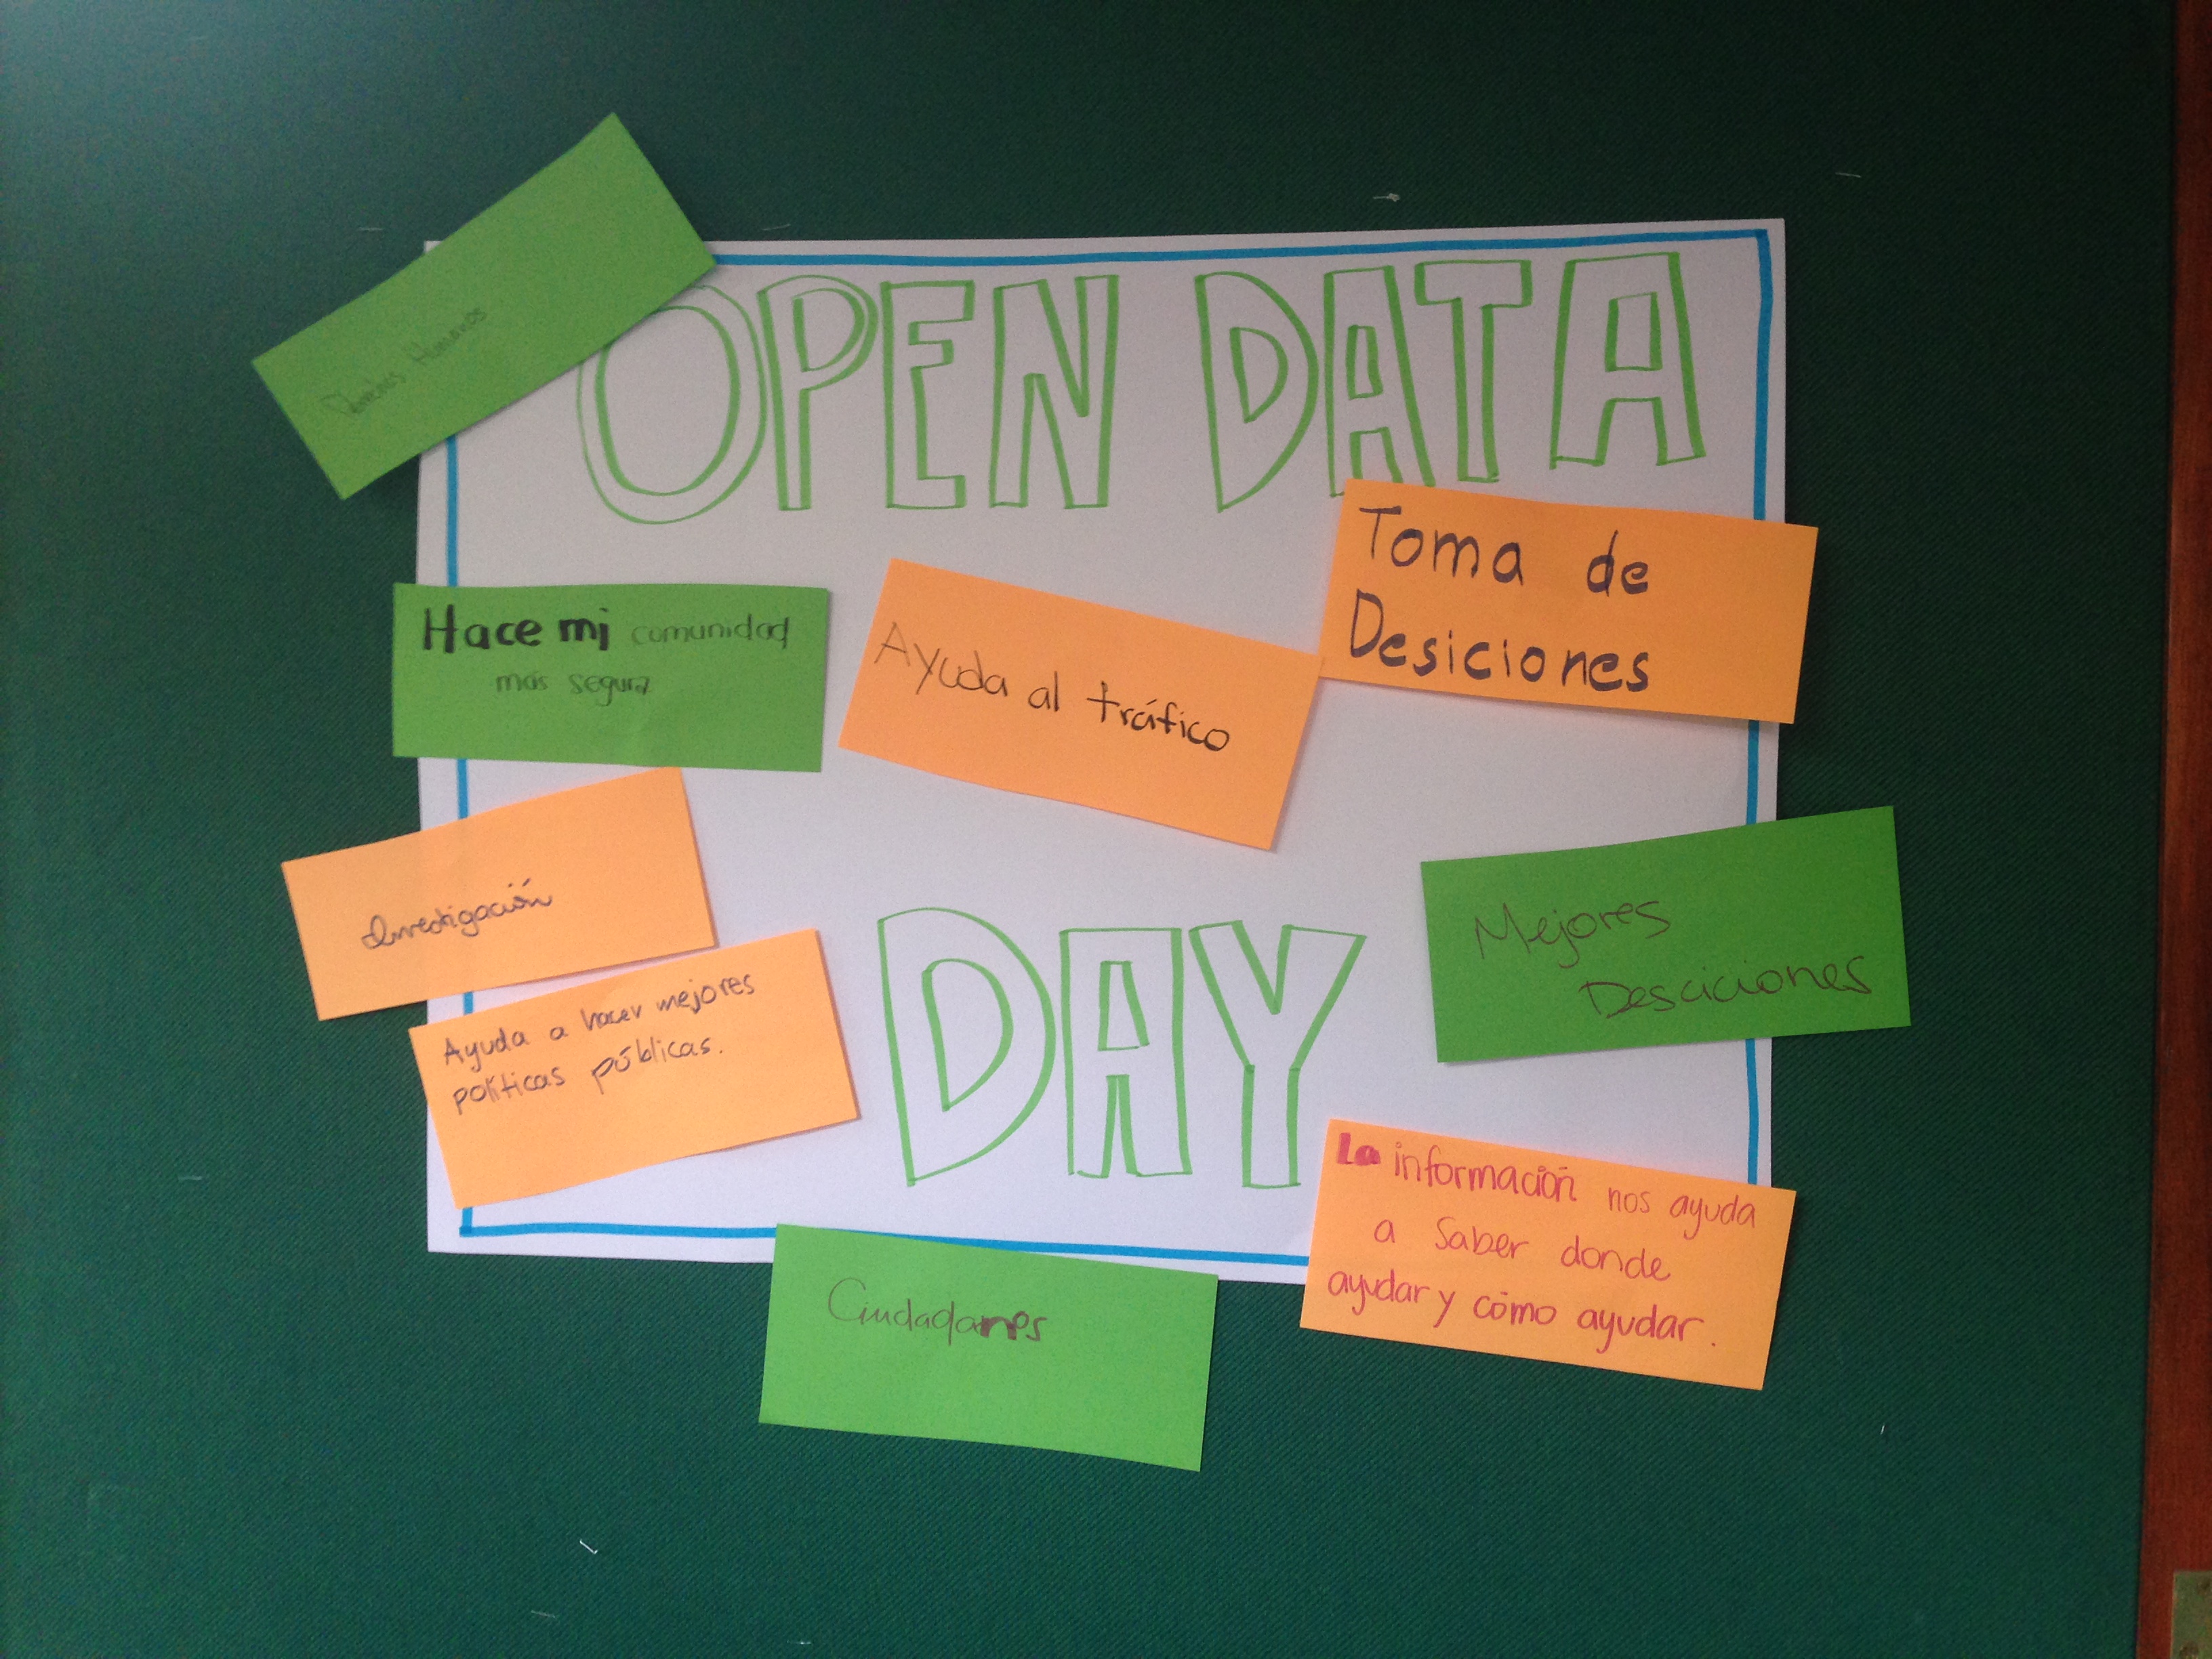 OPEN DATA
Derechos Humanos
Toma de
Desiciones
Hace mi comunidad
más segura
Ayuda al tráfico
Investigación
Mejores
Desciciones
Ayuda a hacer mejores
políticas públicas.
DAY
La información nos ayuda
a Saber donde
ayudar y cómo ayudar.
Ciudadanos